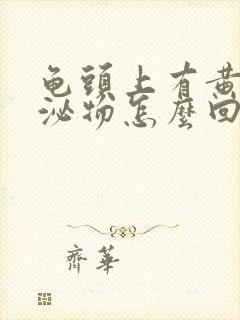 龟頭上有黄
泌物怎麼回
齊華